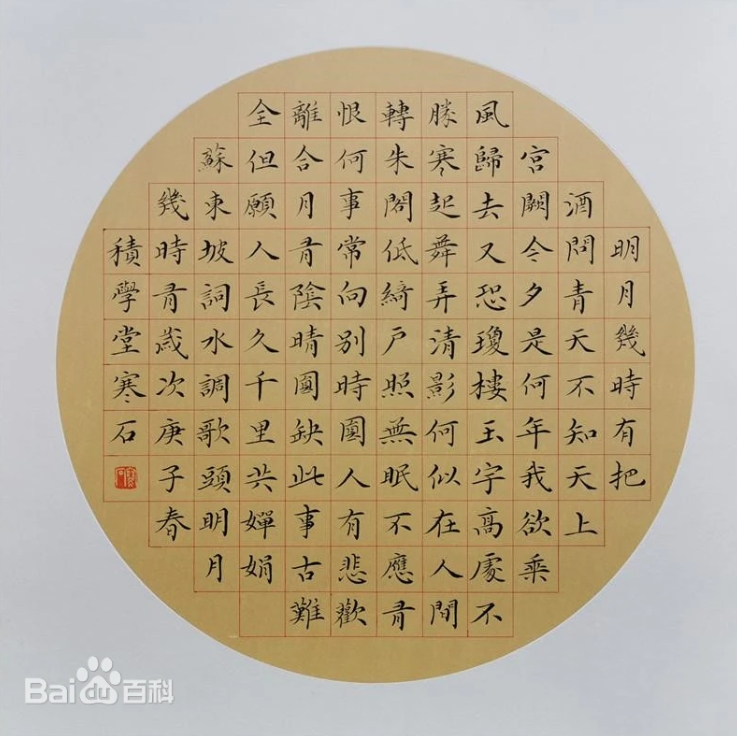 明月幾時有把
酒問青天不知天上
宮闕今夕是何年我欲乘
風歸去又恐瓊樓玉宇高處不
勝寒起舞弄清影何似在人間
轉朱閣低綺戶照無眠不應有
恨何事常向別時圓人有悲歡
離合月有陰晴圓缺此事古難
全但願人長久千里共嬋娟
蘇東坡詞水調歌頭明月
幾時有歲次庚子春
積學堂寒石
Baidu百科